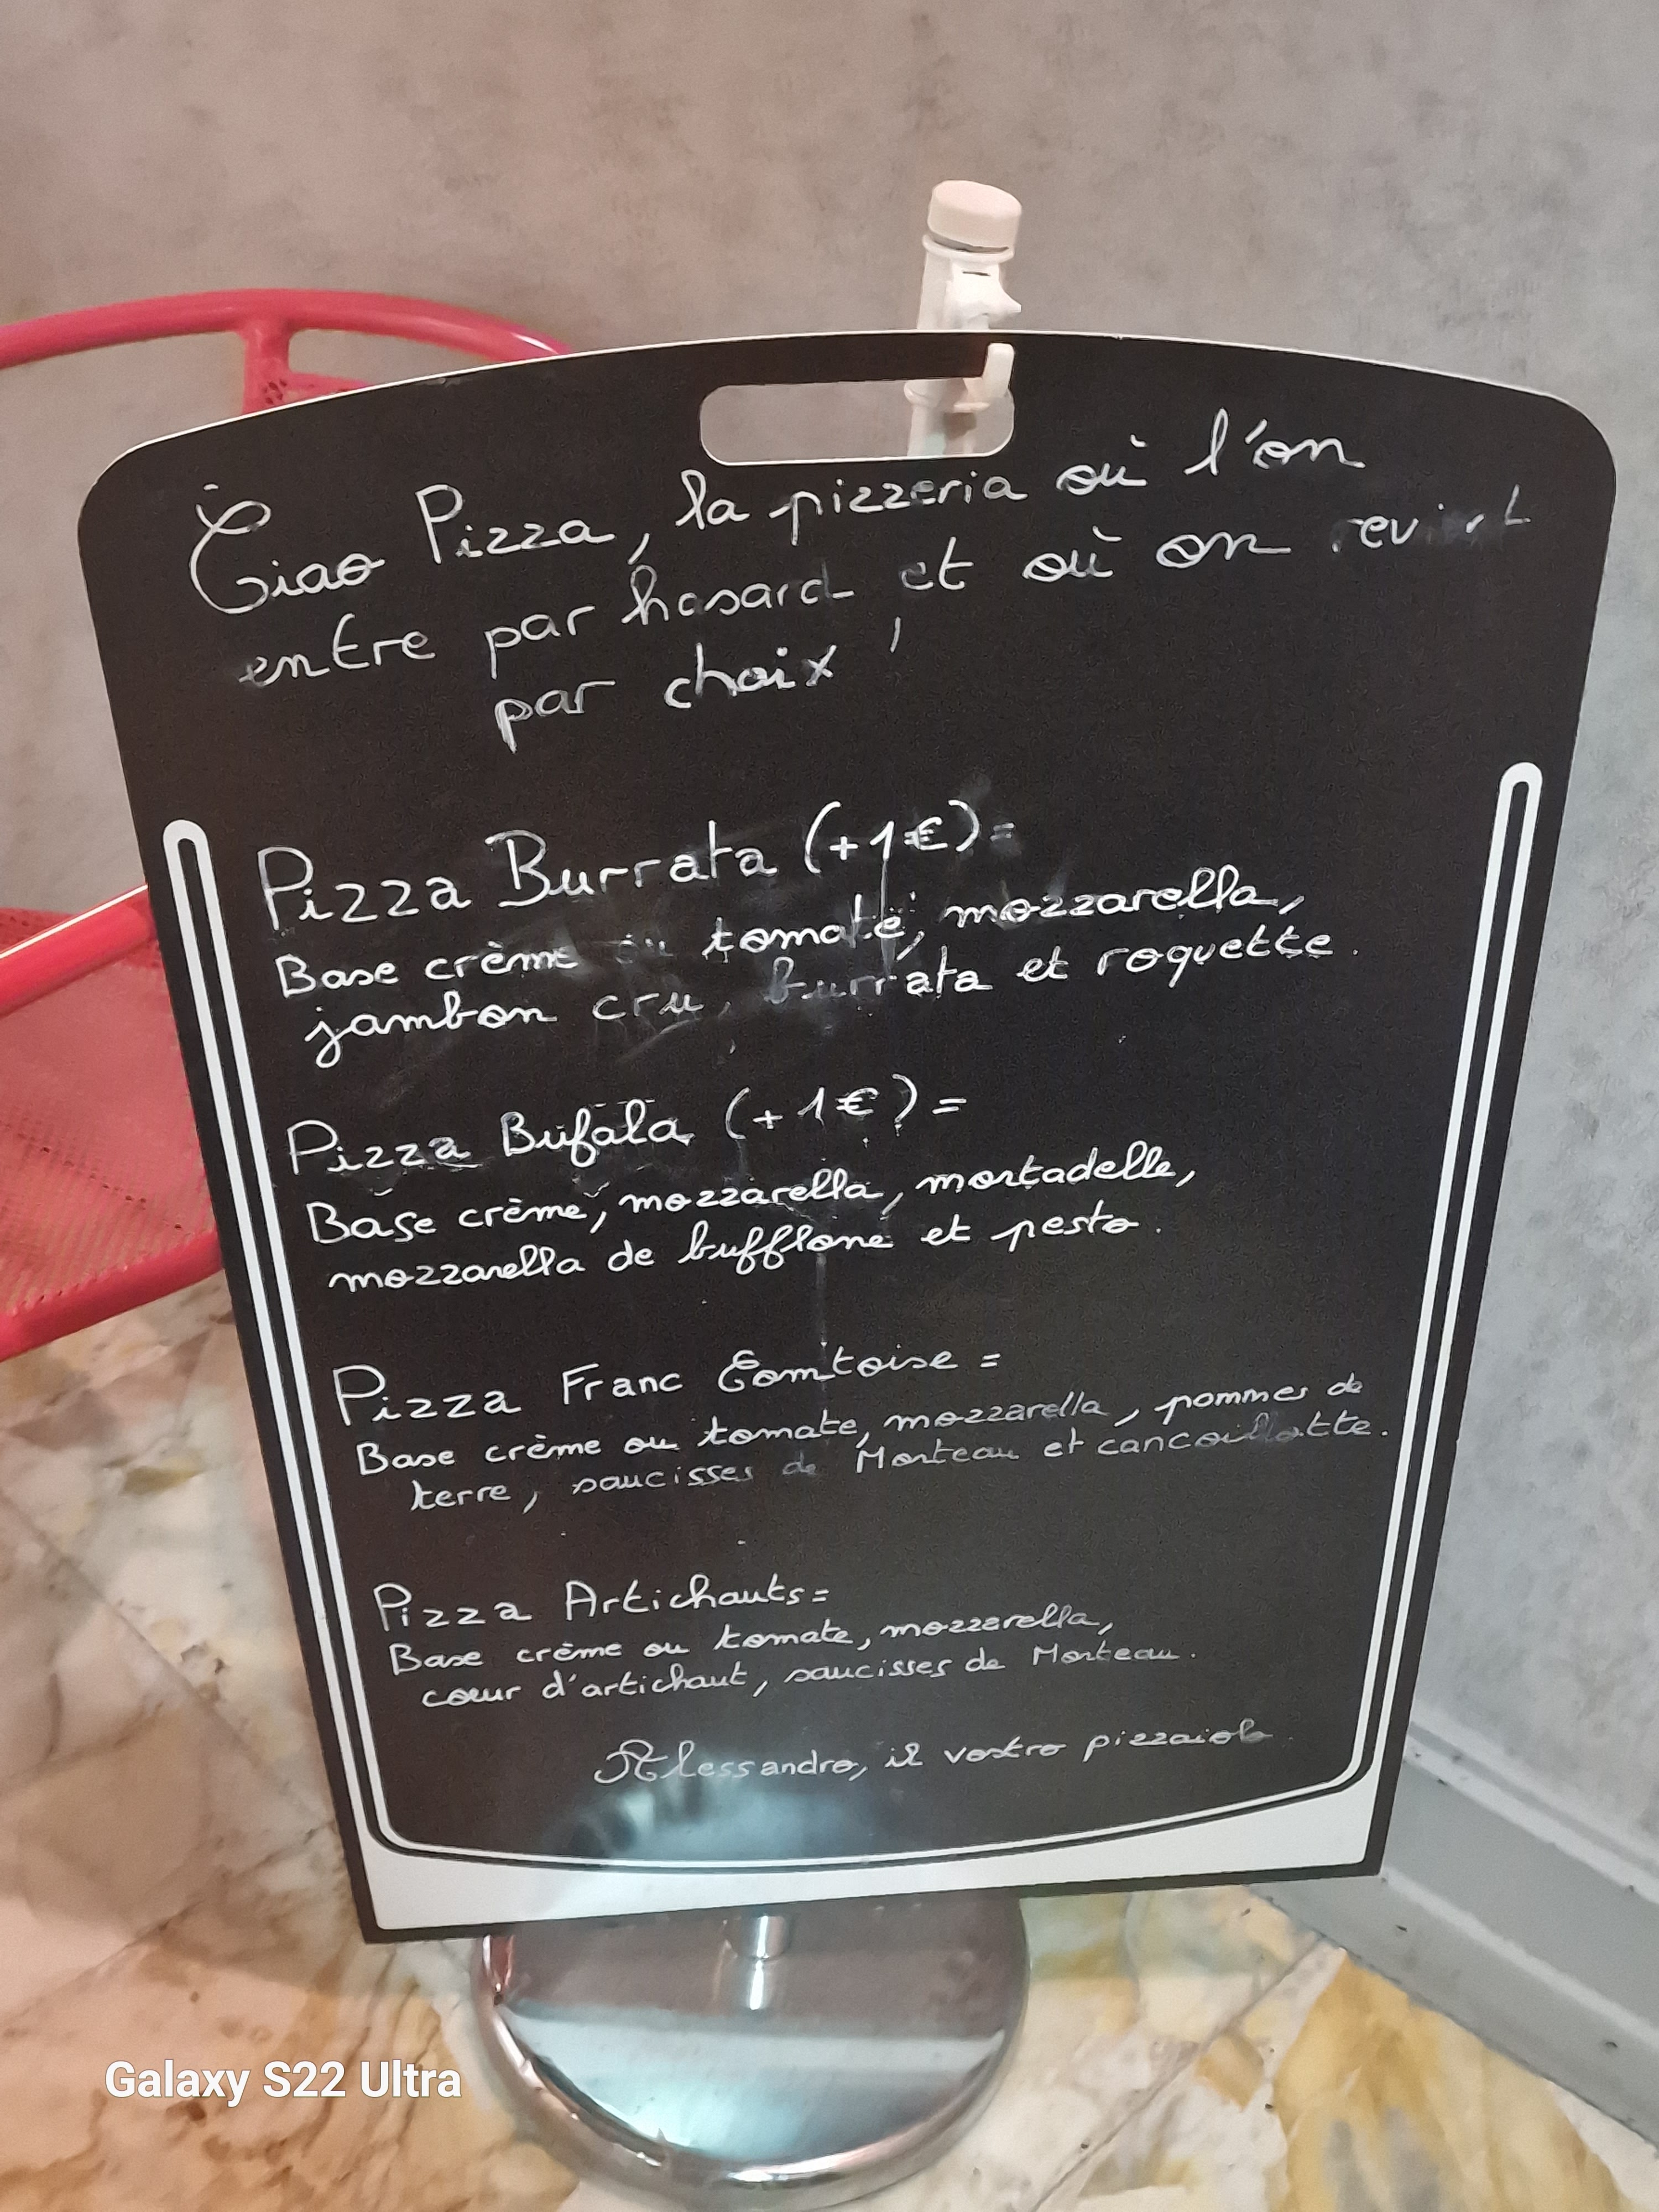 Ciao Pizza, la pizzeria où l'on
entre par hasard et où on revient
par choix !
Pizza Burrata (+1€)=
Base crème ou tomate, mozzarella,
jambon cru, burrata et roquette.
Pizza Bufala (+1€)=
Base crème, mozzarella, mortadelle,
mozzarella de bufflone et pesto.
Pizza Franc Comtoise =
Base crème ou tomate, mozzarella, pommes de
terre, saucisses de Morteau et cancoillotte.
Pizza Artichauts=
Base crème ou tomate, mozzarella,
cœur d'artichaut, saucisses de Morteau.
Alessandro, il vostro pizzaiolo
Galaxy S22 Ultra